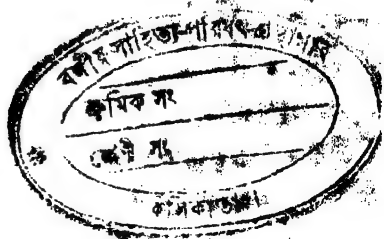 বঙ্গীয় সাহিত্য-পরিষৎ গ্রন্থাগার
ক্রমিক সং
শ্রেণী সং
কলিকাতা।